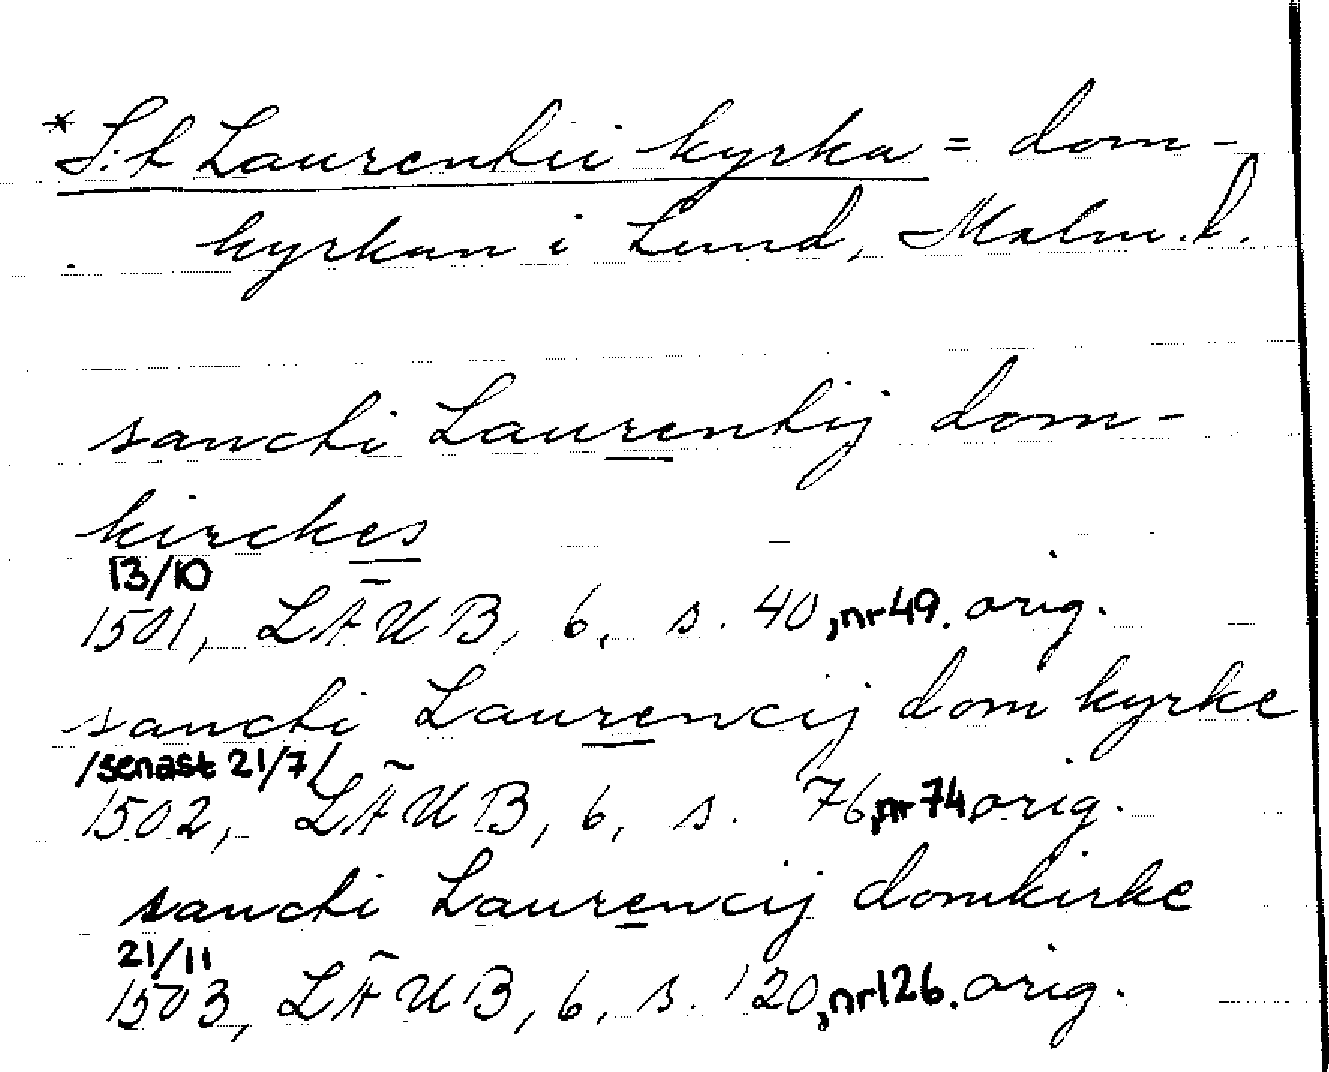 * S:t Laurentii kyrka = dom-
kyrkan i Lund, Malm. l.
sancti Laurentij dom-
kirckes
13/10
1501, LÄUB, 6, s. 40, nr 49. orig.
sancti Laurencij dom kyrke
/senast 21/7/
1502, LÄUB, 6, s. 76, nr 74 orig.
sancti Laurencij domkirke
21/11
1503, LÄUB, 6, s. 120, nr 126. orig.